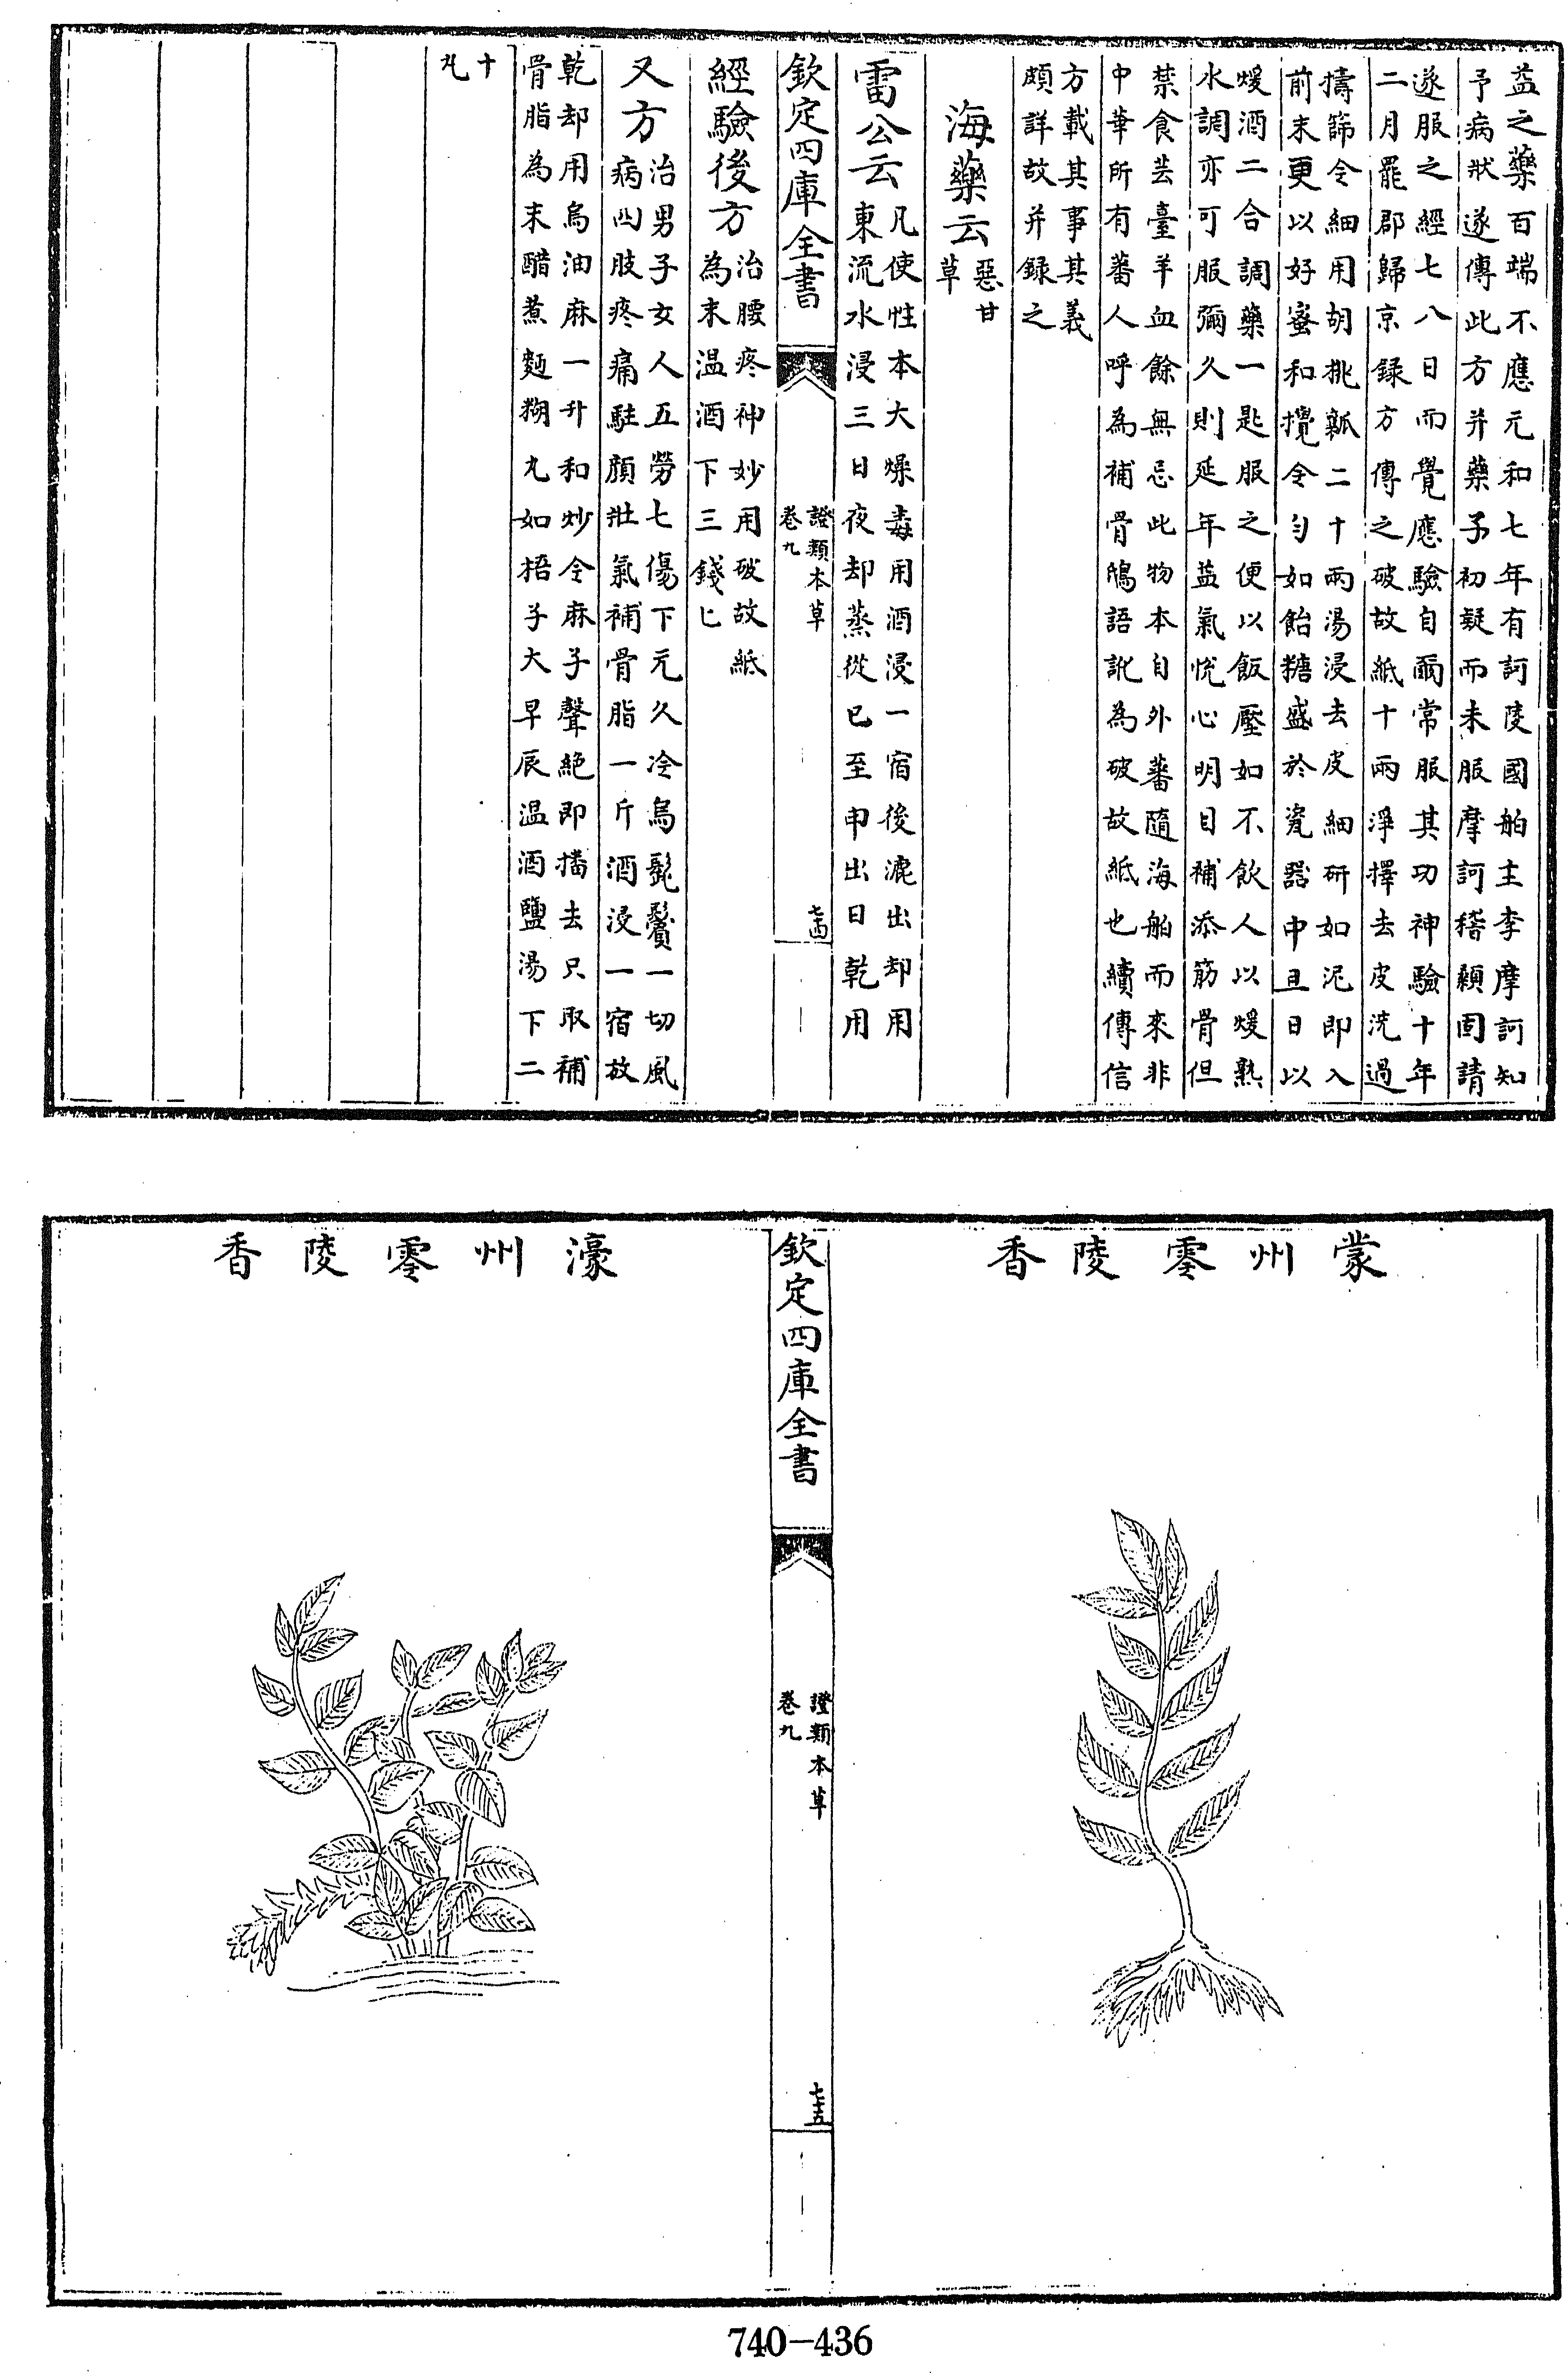 益之藥百端不應元和七年有訶陵國舶主李摩訶知
予病狀遂傳此方并藥予初疑而未服摩訶稽顙固請
遂服之經七八日而覺應驗自爾常服其功神驗十年
二月罷郡歸京録方傳之破故紙十兩淨擇去皮洗過
擣篩令細用胡桃瓤二十兩湯浸去皮細研如泥即入
前末更以好蜜和攪令勻如飴糖盛於瓷器中旦日以
煖酒二合調藥一匙服之便以飯壓如不飲人以煖熟
水調亦可服彌久則延年益氣悅心明目補添筋骨但
禁食芸臺羊血餘無忌此物本自外蕃隨海舶而來非
中華所有蕃人呼為補骨鴟語訛為破故紙也續傳信
方載其事其義
頗詳故并録之
海藥云惡甘
草
雷公云凡使性本大燥毒用酒浸一宿後漉出却用
東流水浸三日夜却蒸從巳至申出日乾用
欽定四庫全書
證類本草
卷九
七十四
經驗後方治腰疼神妙用破故紙
為末温酒下三錢匕
又方治男子女人五勞七傷下元久冷烏髭鬢一切風
病四肢疼痛駐顔壯氣補骨脂一斤酒浸一宿放
乾却用烏油麻一升和炒令麻子聲絶即播去只取補
骨脂為末醋煮麪糊丸如梧子大早辰温酒鹽湯下二
十
丸
蒙州零陵香
欽定四庫全書
證類本草
卷九
七十五
濠州零陵香
740-436